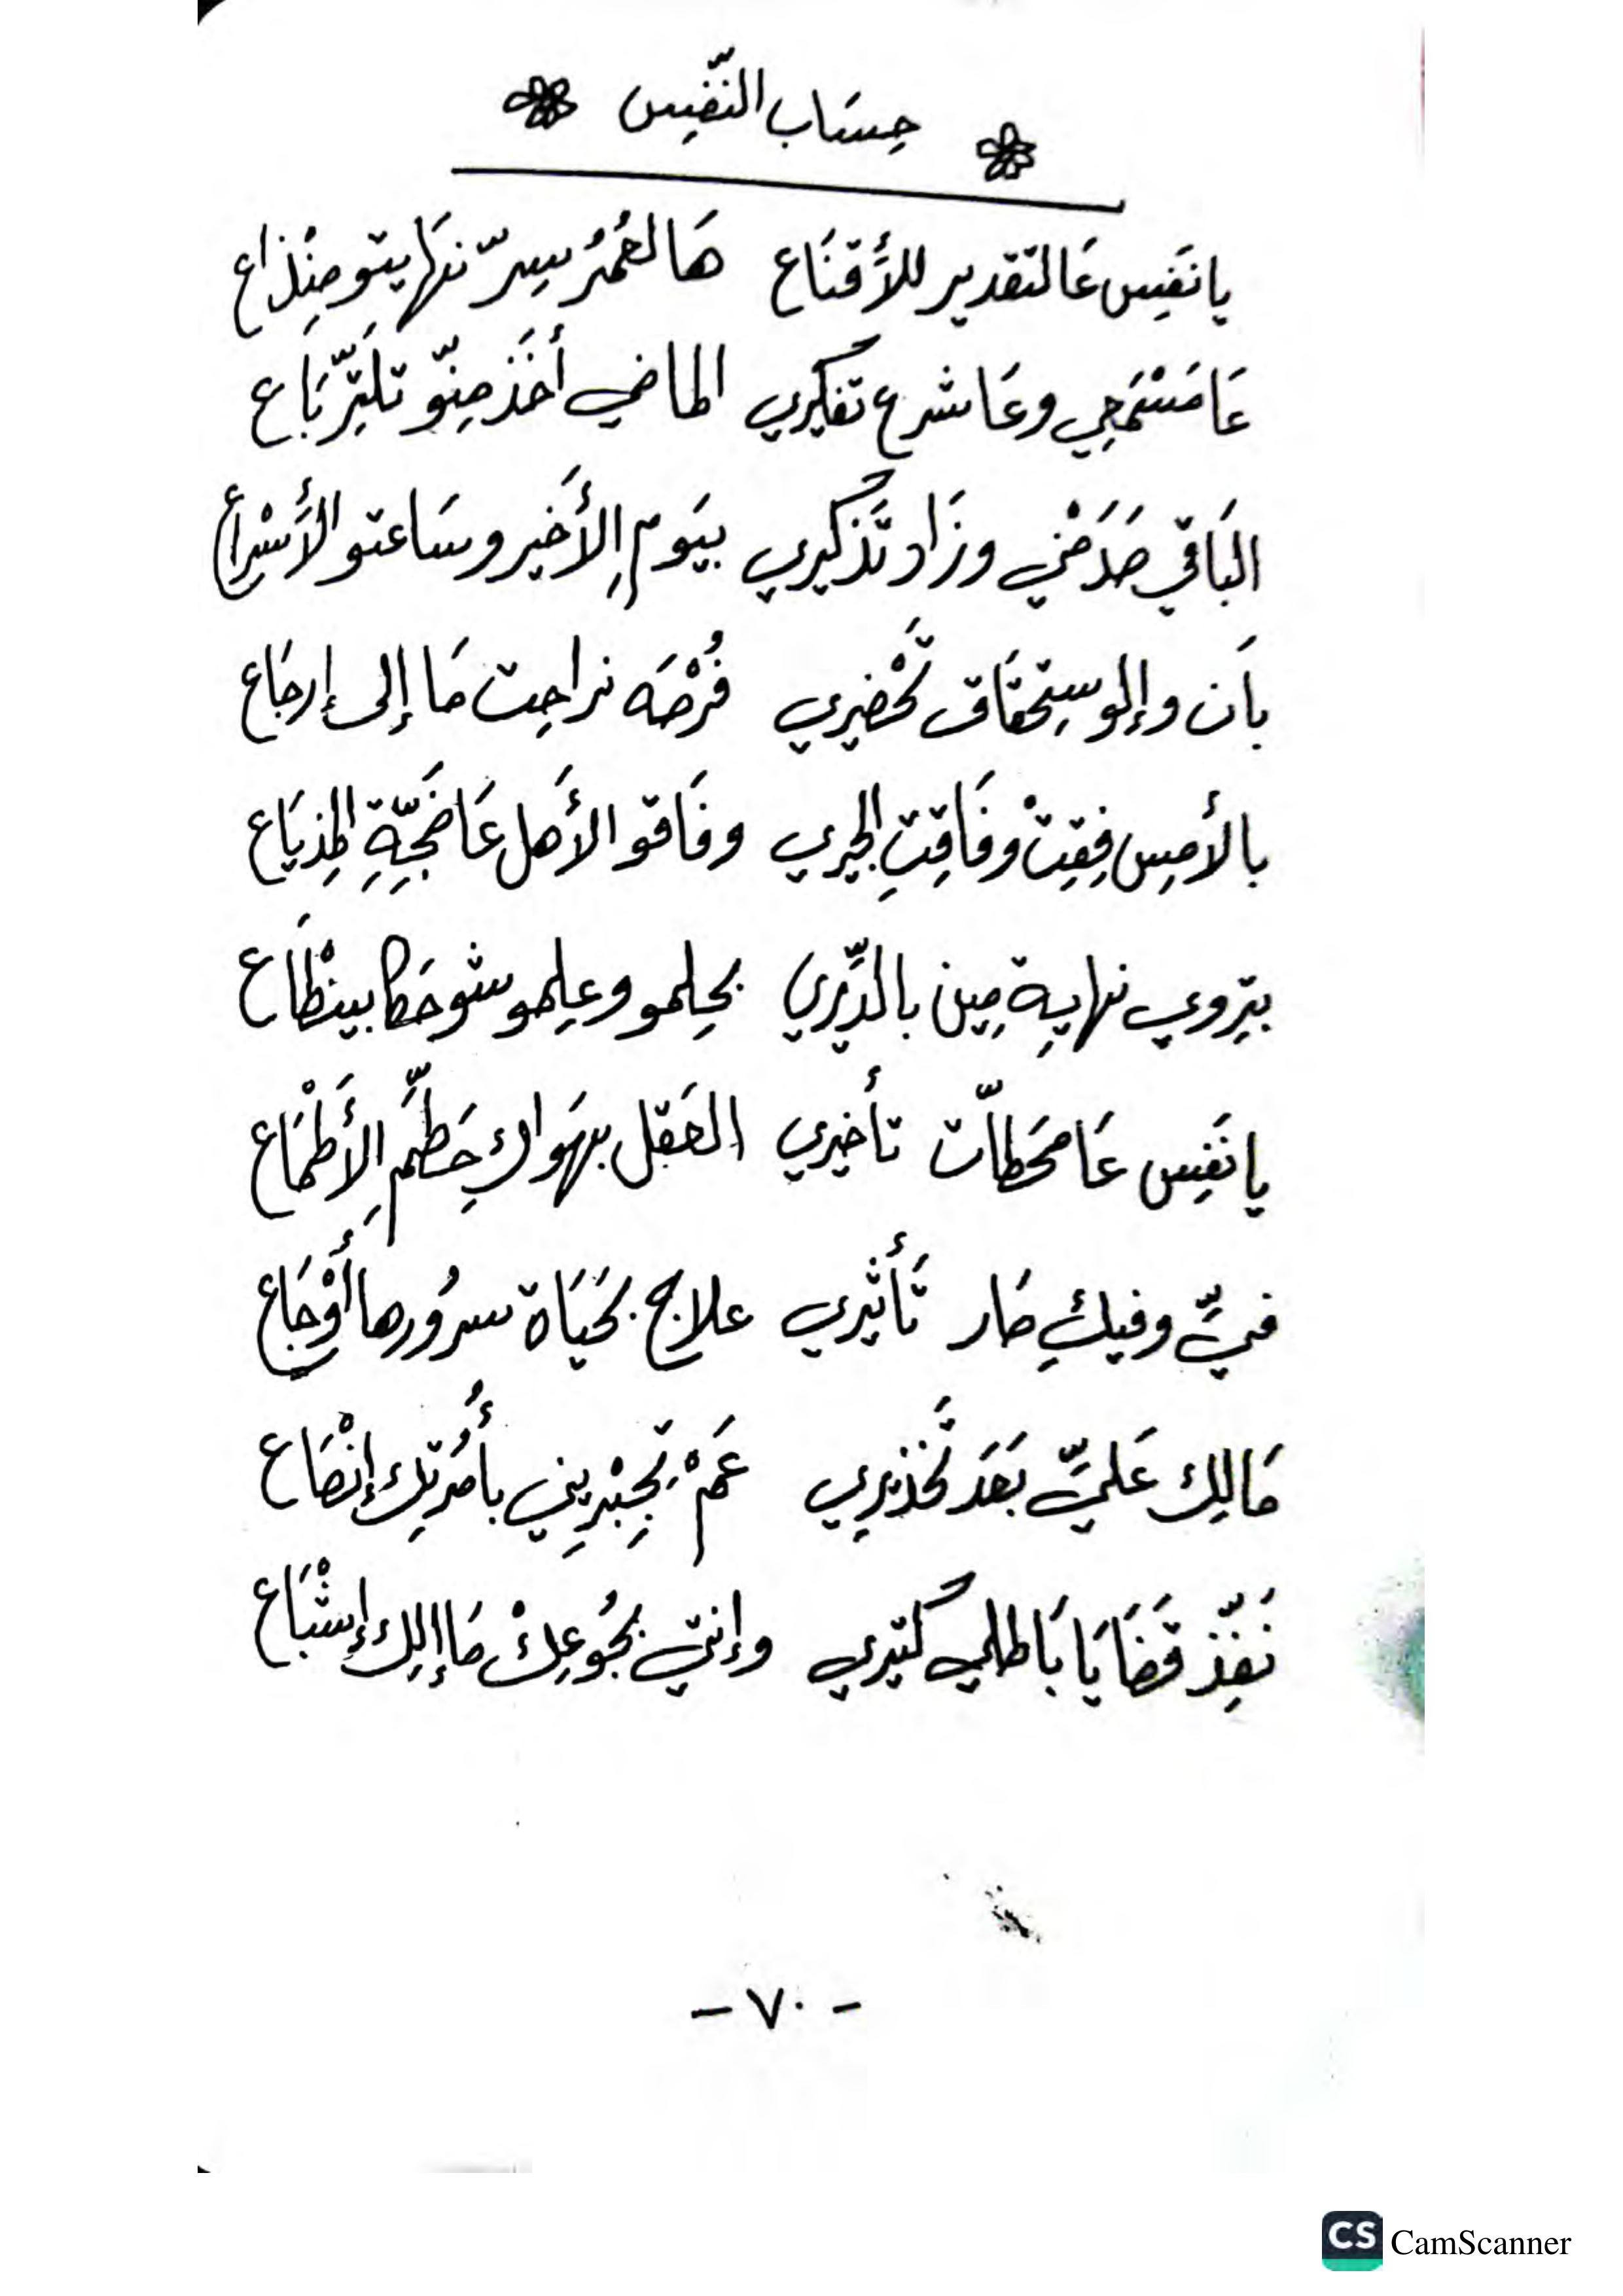 حِسَاب النّفِس
يا نَفِس عَالتقدير للأَقنَاع هَالعُمُر سِرّ نهَايتو مِنْذاع
عَا مَسْمَعِي وعَا شرع تفكيري الماضي أخَذ مِنّو تلتِرّبَاع
البَاقي صَدَمْني وزَاد تَذكيري بيَوم الأَخير وسَاعتو الأَسْراع
بأن وإلو سِتحقَاق تَحْضيري فُرْصَه نراحِت مَا إلى إرجَاع
بالأمِس فِقِتْ وفَاقِتِ الجيري وفَاقو الأَهل عَا ضَجِّةِ المِذيَاع
بتِروي نهايِة مِين بالدَّيري بحِلمو وعِلمو شو حَكا بينْطَاع
يا نَفِس عَا محَطاّت تأخيري العَقل بهَواكِ حَطَّم الأَطْمَاع
فيِّ وفيكِ صَار تَأثيري علاج بحَيَاة سرُورها أَوْجَاع
مَالِك عَليِّ بَعَد تَحْذيري عَمْ تِجِبْريني بأمُرتِك إنْصَاع
نَفِّذ قَضَايَا بَاطلي كتيري وإنتي بجُوعِكْ مَا إلِك إشْبَاع
- ٧٠ -
CS CamScanner